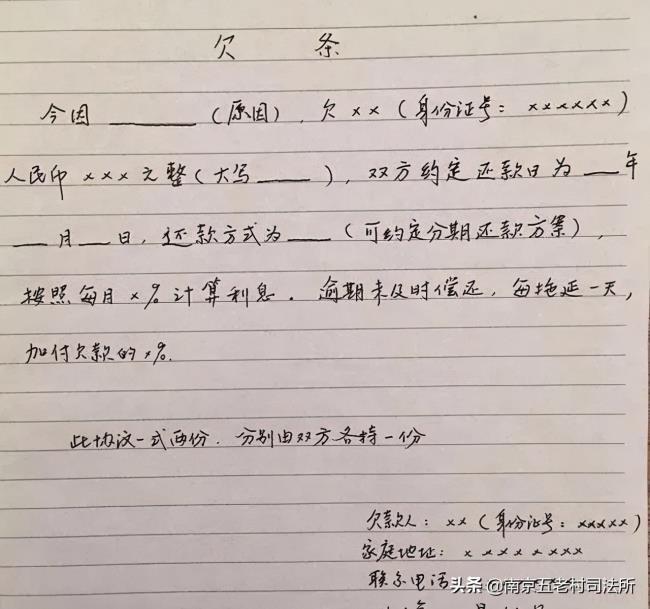 欠 条
今因 ______ (原因), 欠 xx (身份证号: xxxxxx)
人民币 xxx 元整 (大写 ____ ), 双方约定还款日为 __ 年
__ 月 __ 日, 还款方式为 ____ (可约定分期还款方案),
按照每月 x% 计算利息. 逾期未及时偿还, 每拖延一天,
加付欠款的 x%.
此协议一式两份. 分别由双方各持一份
欠款人: xx (身份证号: xxxxx)
家庭地址: xxxxxxxx
联系电话
头条 @南京五老村司法所